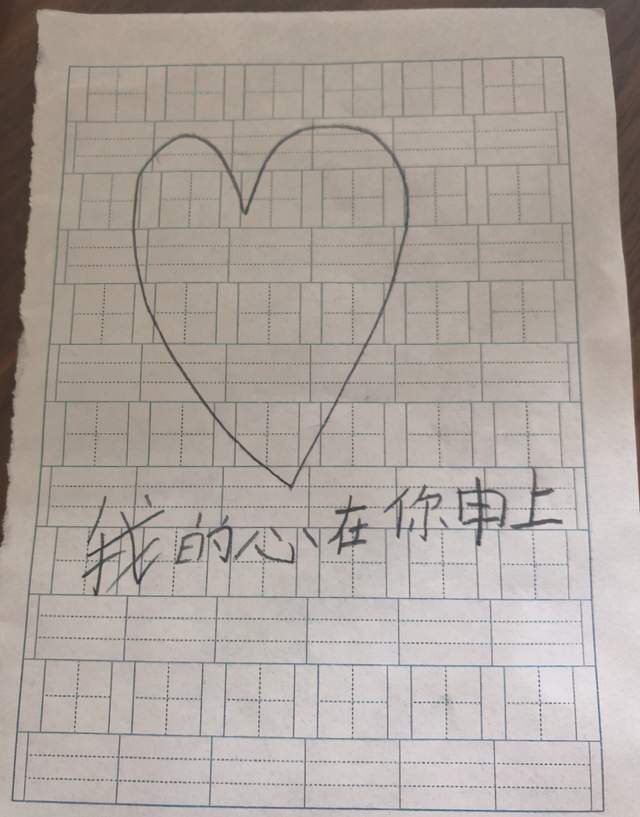 我的心在你申上